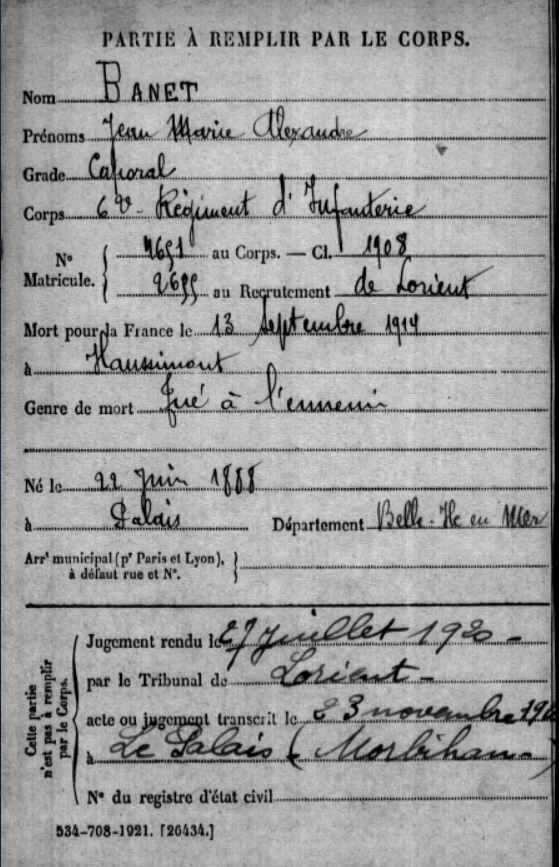 PARTIE À REMPLIR PAR LE CORPS.
Nom BANET
Prénoms Jean Marie Alexandre
Grade Caporal
Corps 6e Régiment d'Infanterie
N° Matricule. au Corps. — Cl. 1908
au Recrutement de Lorient
Mort pour la France le 13 Septembre 1914
à Haussimont
Genre de mort Tué à l'ennemi
Né le 22 Juin 1888
à Palais Département Belle-Ile en Mer
Arrt municipal (pr Paris et Lyon),
à défaut rue et N°.
Cette partie n'est pas à remplir par le Corps.
Jugement rendu le 27 juillet 1920 -
par le Tribunal de Lorient -
acte ou jugement transcrit le 23 novembre
à Le Palais (Morbihan-)
N° du registre d'état civil
534-708-1921. [26434.]